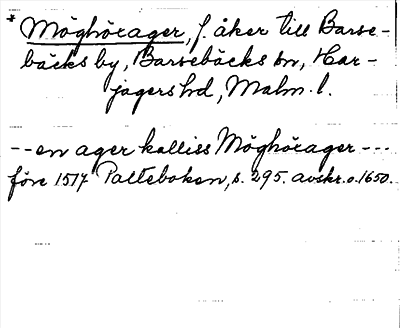 * Möghörager, f. åker till Barse-
bäcks by, Barsebäcks sn, Har-
jagers hd, Malm. l.
-- en ager kalliss Möghörager ---
före 1517 Palteboken, s. 295. avskr. o. 1650.